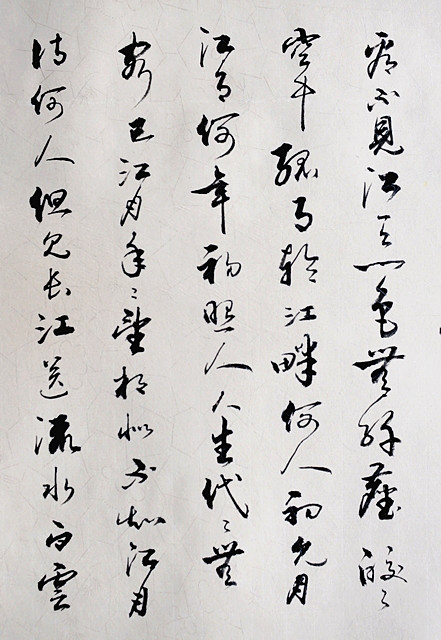 看不見江天一色無纖塵皎〻
空中孤月輪江畔何人初見月
江月何年初照人人生代〻無
窮已江月年〻望相似不知江月
待何人但見長江送流水白雲